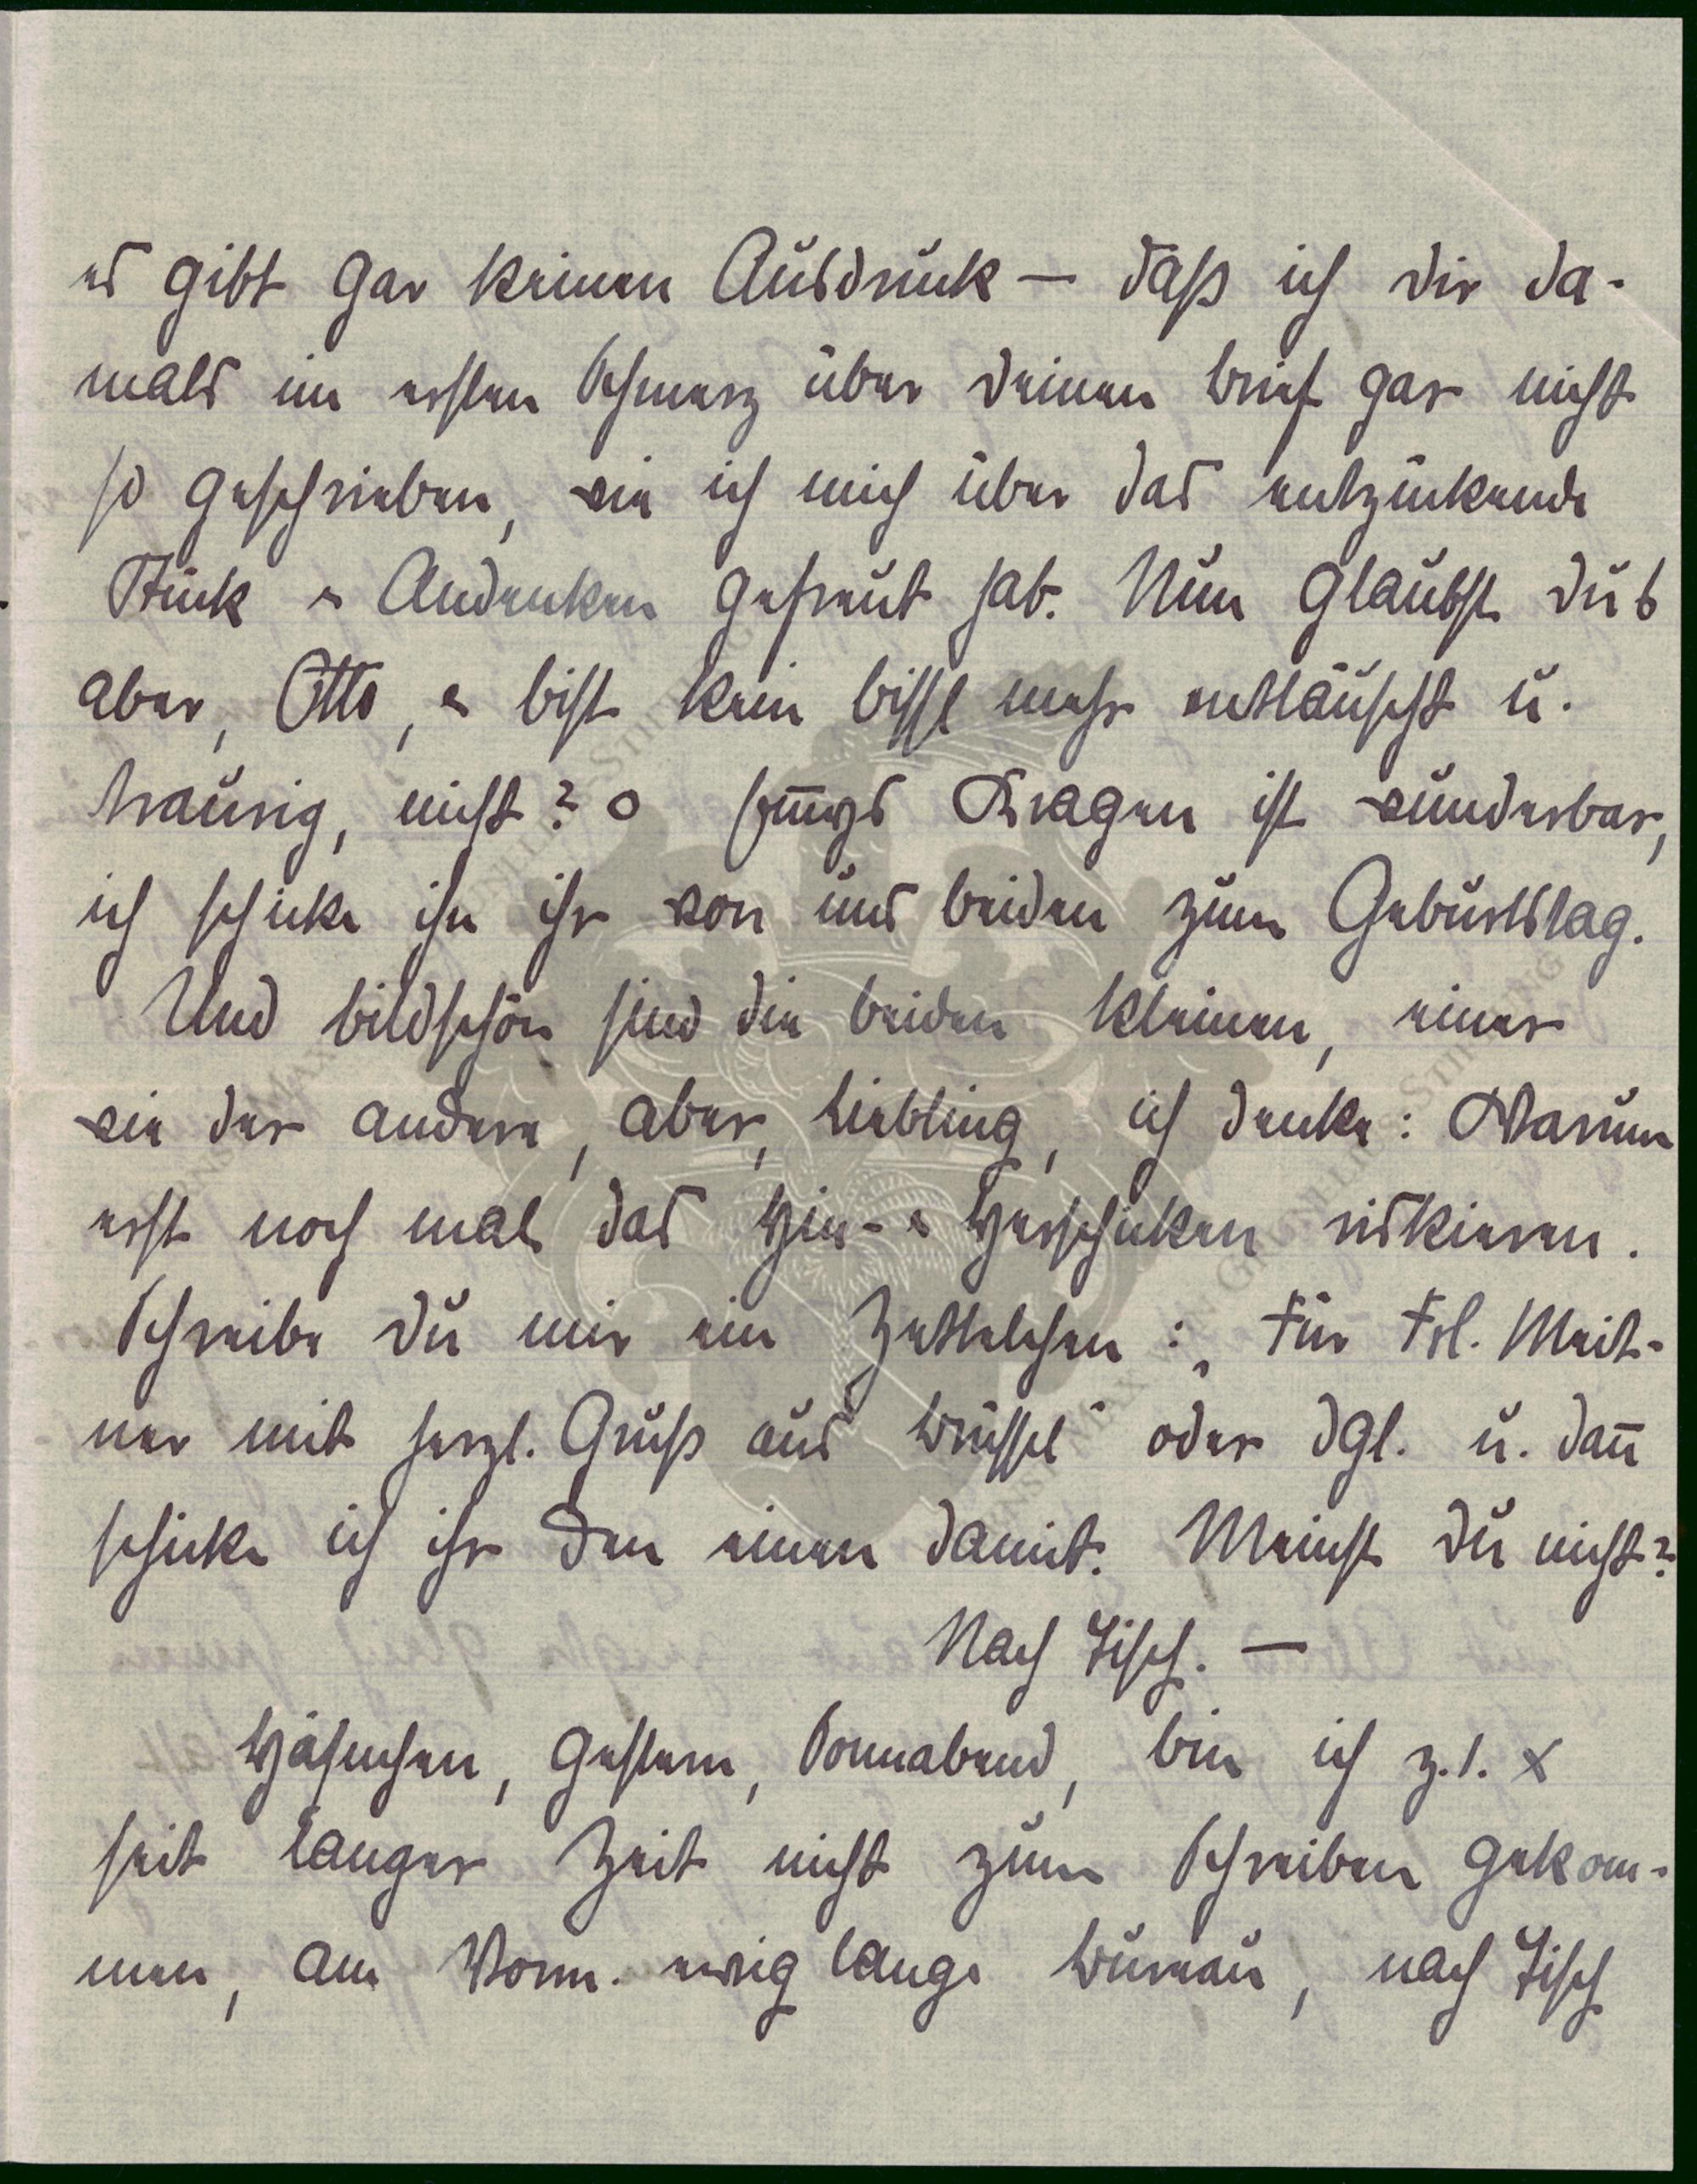 es gibt gar keinen Ausdruck — daß ich dir da-
mals im ersten Schmerz über deinen Brief gar nicht
so geschrieben, wie ich mich über das entzückende
Stück & Andenken gefreut hab. Nun glaubst du's
aber, Otto, & bist kein bissl mehr enttäuscht u.
traurig, nicht? o Emmys Kragen ist wunderbar,
ich schicke ihn ihr von uns beiden zum Geburtstag.
Und bildschön sind die beiden kleinen, einer
wie der andere, aber, Liebling, ich denke: Warum
erst noch mal das Hin- & Herschicken riskieren.
Schreibe du mir ein Zettelchen: „Für Frl. Meit-
ner mit herzl. Gruß aus Brüssel" oder dgl. u. dan̄
schicke ich ihr den einen damit. Meinst du nicht?
Nach Tisch. —
Häschen, gestern, Sonnabend, bin ich z. 1. x
seit langer Zeit nicht zum Schreiben gekom-
men, am Vorm. ewig lange Bureau, nach Tisch